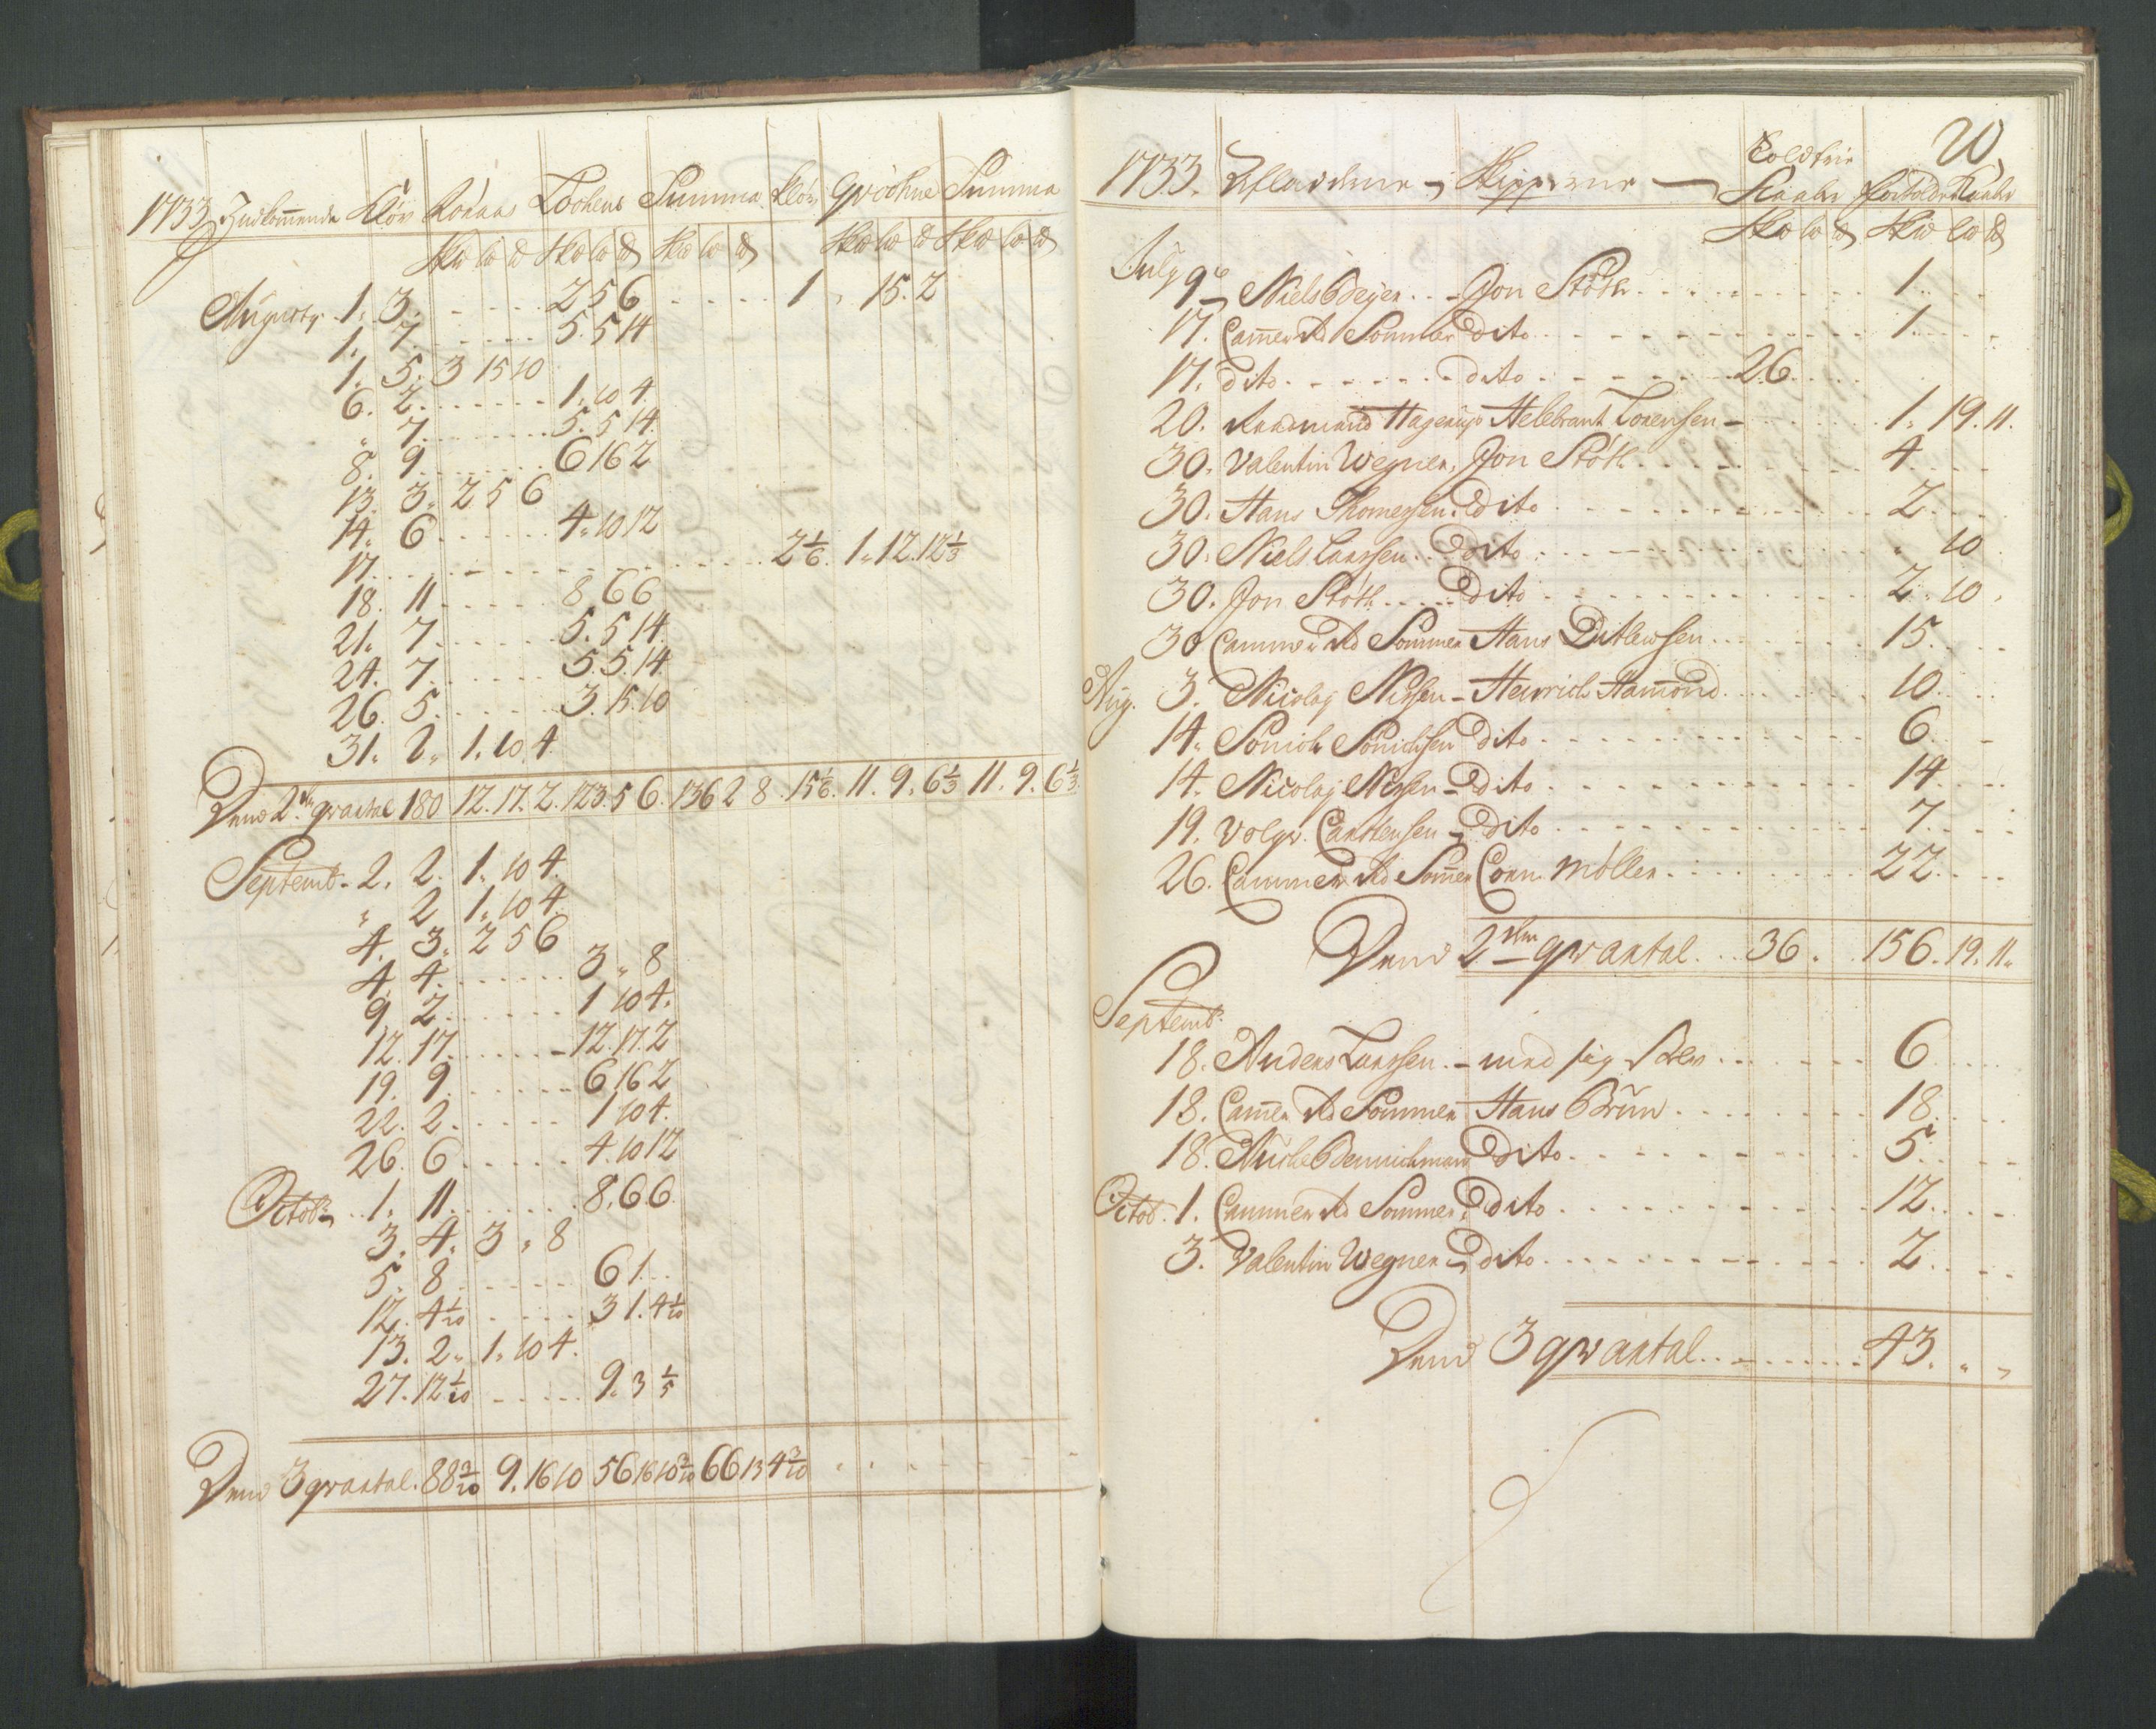 1733 Indkommende Kløv Rόraas Lochens Summa Kløv Qvichne Summa
Sk℔ L℔ ℔ Sk℔ L℔ ℔ Sk℔ L℔ ℔ Sk℔ L℔ ℔ Sk℔ L℔ ℔
Augusty 1. 3. 2 5 6 1 " 15. 2
1. 7. 5. 5 14
1. 5. 3 15 10
6. 2. 1. 10 4.
" 7. 5. 5 14.
8. 9. 6 16 2
13. 3. 2 5 6
14. 6 4. 10 12
17. 2 1/6. 1. 12. 12 1/3
18. 11 8 6 6
21. 7 5. 5 14.
24. 7. 5. 5. 14
26. 5. 3. 15. 10
31. 2. 1. 10. 4.
Dend 2den qvartal 180 12. 17. 2. 123. 5 6. 136 2 8. 15 1/6. 11. 9. 6 1/3 11. 9. 6 1/3.
Septemb. 2. 2. 1. 10 4.
" 2 1. 10 4.
4. 3. 2 5 6
4. 4. 3 " 8
9 2. 1 10 4.
12. 17. 12. 17. 2
19. 9. 6 16 2
22. 2. 1 10 4.
26. 6 4. 10 12
Octob. 1. 11. 8. 6 6.
3. 4. 3 " 8
5. 8 6 1.
12. 4 1/10 3 1. 4 1/10
13. 2. 1. 10 4.
27. 12 1/10 9. 3 1/5
Dend 3 qvartal. 88 3/10 9. 16 10 56 16 10 3/10 66 13 4 3/10
20.
1733. Aflaadene Skipperne Toldfrie
Kaaber Fortoldet Kaaber
Sk℔ L℔ ℔ Sk℔ L℔ ℔
July 9. Niels Beyer Jon Stöth 1.
17. Cammer Rd Sommer Dito 1.
17. dito dito 26.
20. Raadmand Hagerup Helebrant Lorensen 1. 19. 11.
30. Valentin Wegner, Jon Stöth 4
30. Hans Thomessen Dito 2
30. Niels Larssen Dito " 10
30. Jon Stöth Dito 2. 10.
30 Cammer Rd Sommer Hans Ditlewsen 15.
Aug. 3. Nicolaj Nissen Henrich Hammond 10.
14. Sönich Sönichsen Dito 6.
14. Nicolaj Nissen Dito 14.
19. Volqv. Carstensen Dito 7.
26. Cammer Rd Sommer Corn. Möller 22.
Dend 2den qvartal 36. 156. 19. 11.
Septemb.
18. Anders Larssen med sig Selv 6
18. Cammer Rd Sommer Hans Brun 18.
18. Dito 5
Octob. 1. Cammer Rd Sommer Dito 12.
3. Valentin Wegner dito 2.
Dend 3 qvartal 43. " "